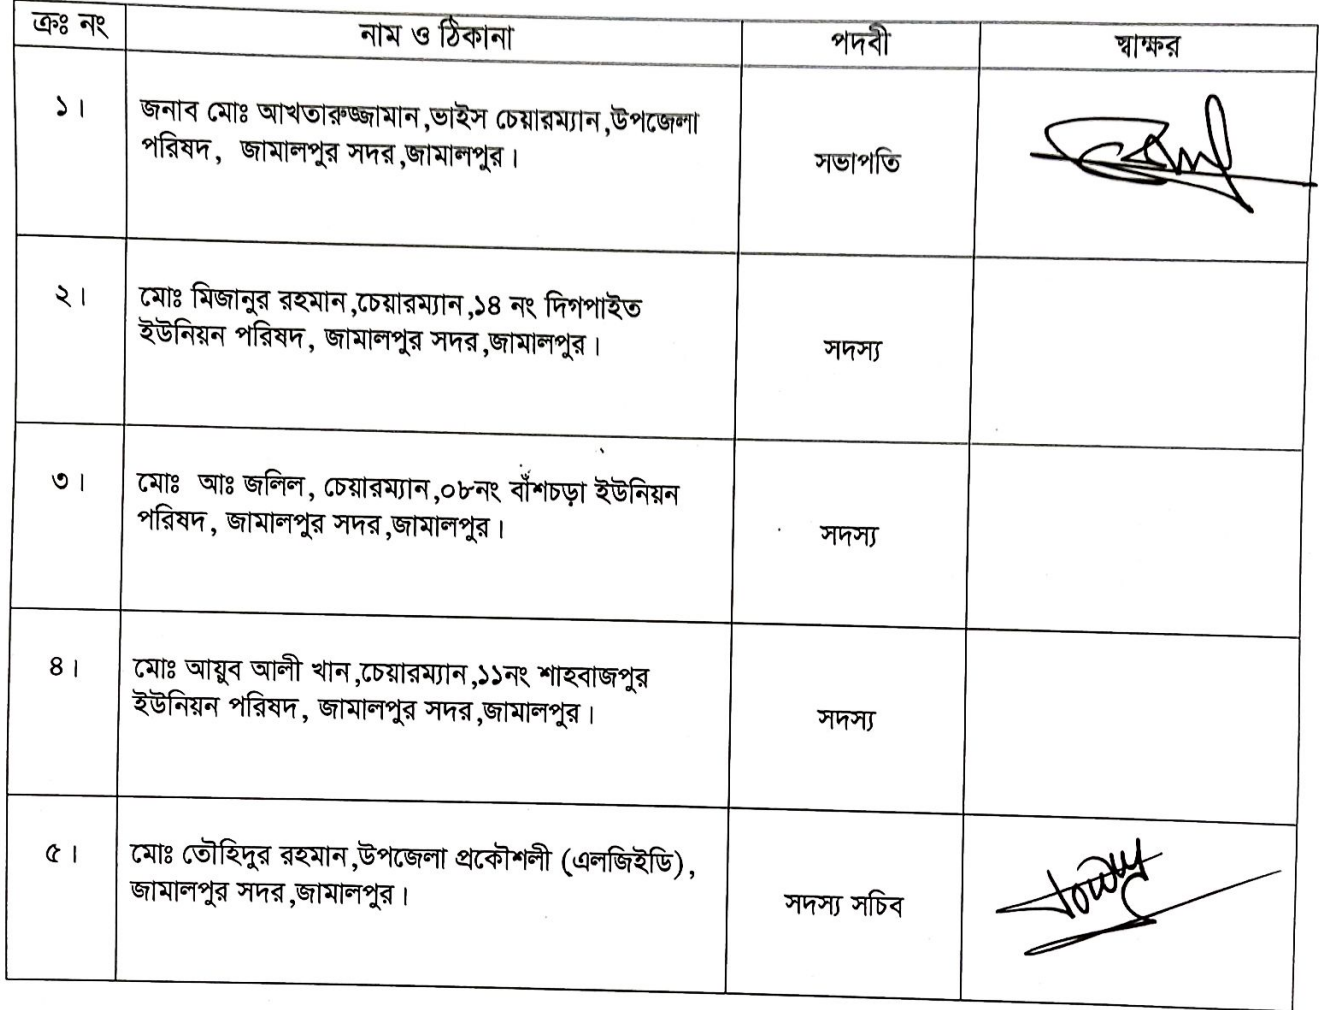 ক্রঃ নং নাম ও ঠিকানা পদবী স্বাক্ষর
১। জনাব মোঃ আখতারুজ্জামান,ভাইস চেয়ারম্যান,উপজেলা
পরিষদ, জামালপুর সদর,জামালপুর।
সভাপতি
২। মোঃ মিজানুর রহমান,চেয়ারম্যান,১৪ নং দিগপাইত
ইউনিয়ন পরিষদ, জামালপুর সদর,জামালপুর।
সদস্য
৩। মোঃ আঃ জলিল, চেয়ারম্যান,০৮নং বাঁশচড়া ইউনিয়ন
পরিষদ, জামালপুর সদর,জামালপুর।
সদস্য
৪। মোঃ আয়ুব আলী খান,চেয়ারম্যান,১১নং শাহবাজপুর
ইউনিয়ন পরিষদ, জামালপুর সদর,জামালপুর।
সদস্য
৫। মোঃ তৌহিদুর রহমান,উপজেলা প্রকৌশলী (এলজিইডি),
জামালপুর সদর,জামালপুর।
সদস্য সচিব